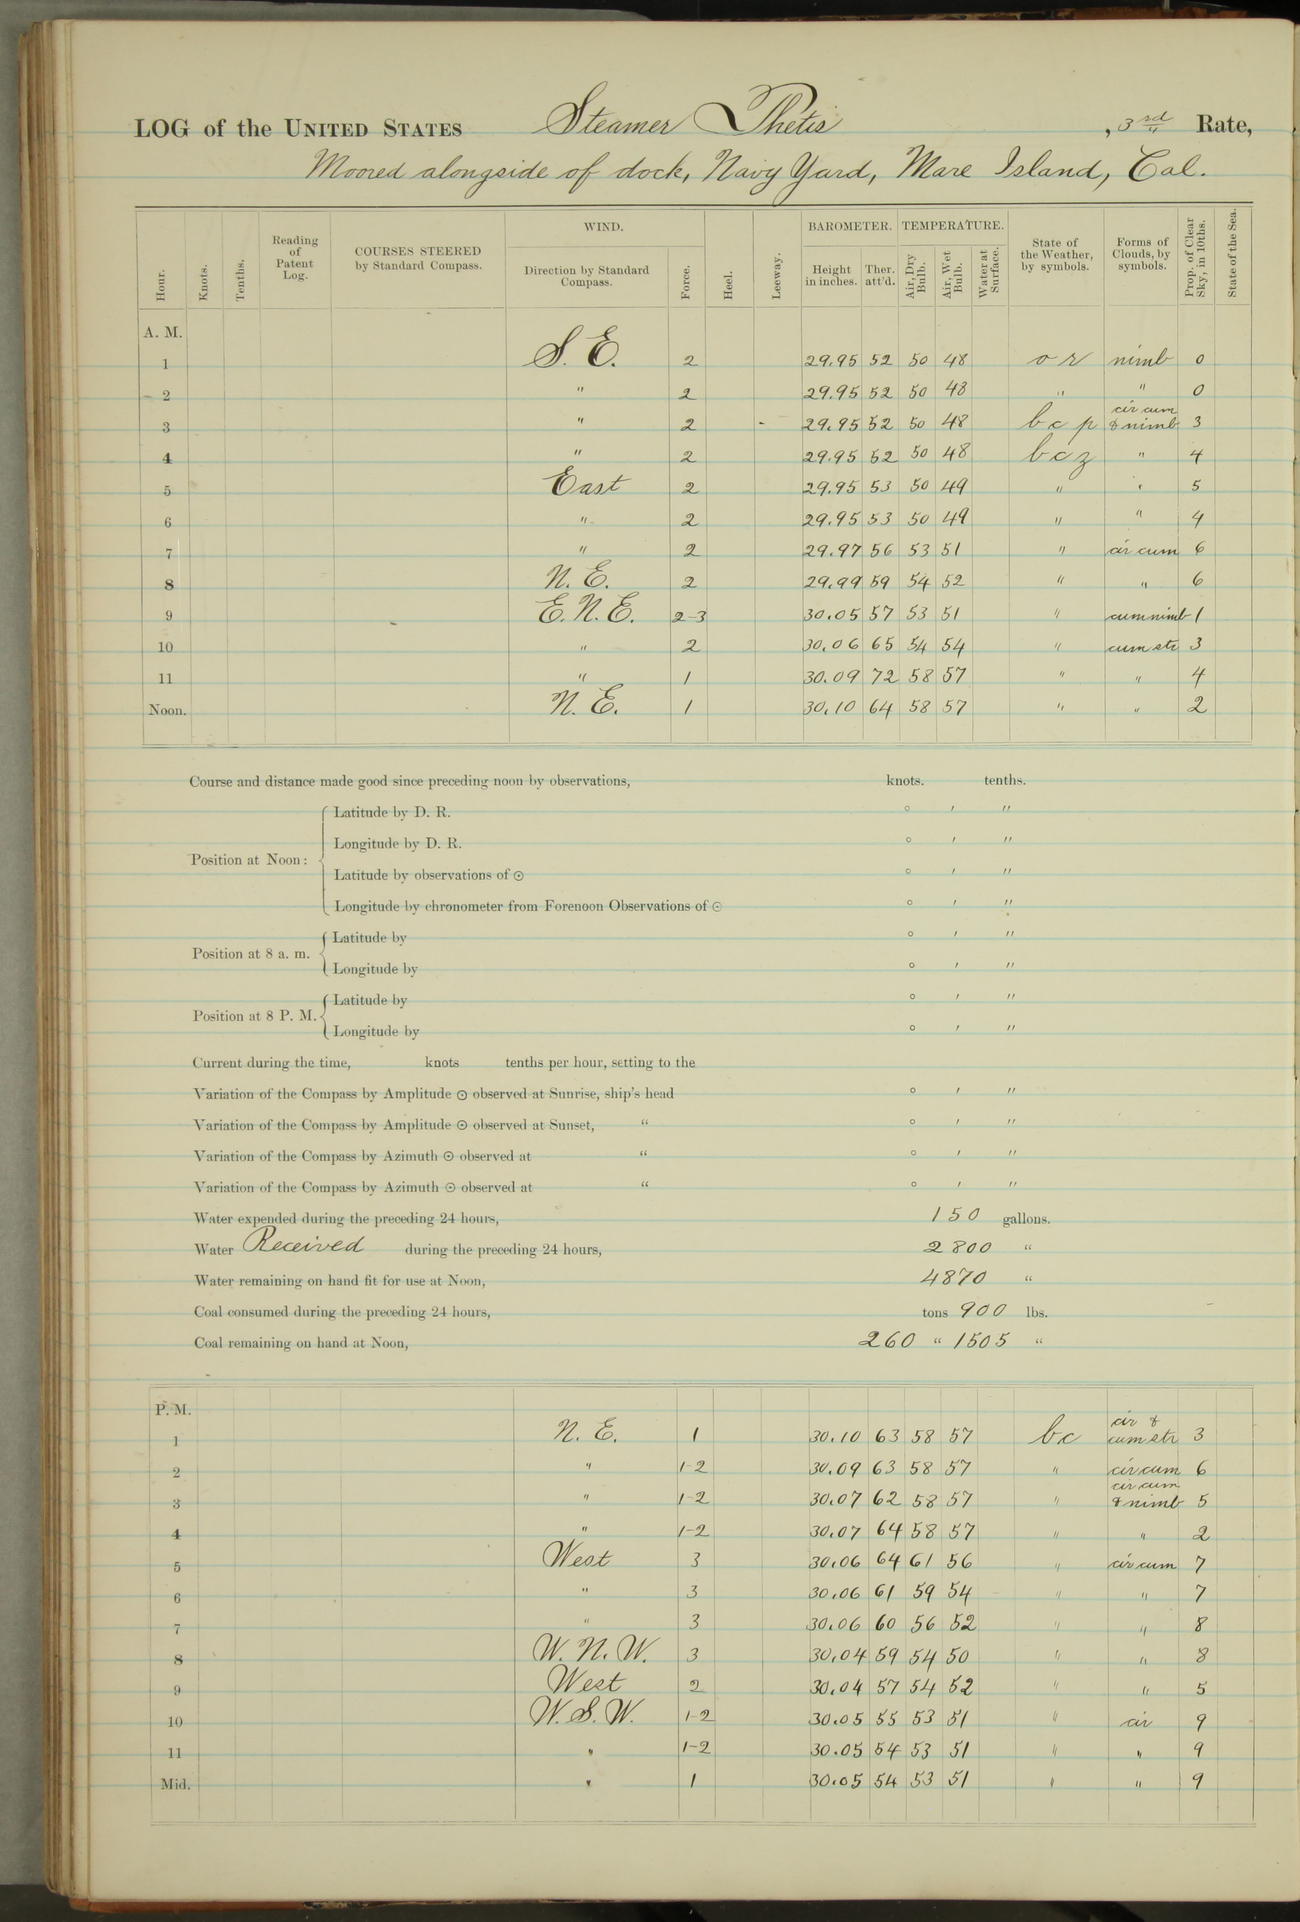 LOG of the UNITED STATES Steamer Thetis, 3rd Rate,
Moored alongside of dock, Navy Yard, Mare Island, Cal.
Hour. Knots. Tenths. Reading of Patent Log. COURSES STEERED by Standard Compass. WIND. Direction by Standard Compass. Force. Heel. Leeway. BAROMETER. Height in inches. Ther. att'd. TEMPERATURE. Air, Dry Bulb. Air, Wet Bulb. Water at Surface. State of the Weather, by symbols. Forms of Clouds, by symbols. Prop. of Clear Sky, in 10ths. State of the Sea.
A. M.
1 S. E. 2 29.95 52 50 48 o r nimb 0
2 " 2 29.95 52 50 48 " " 0
3 " 2 29.95 52 50 48 b c p cir cum & nimb 3
4 " 2 29.95 52 50 48 b c z " 4
5 East 2 29.95 53 50 49 " " 5
6 " 2 29.95 53 50 49 " " 4
7 " 2 29.97 56 53 51 " cir cum 6
8 N. E. 2 29.99 59 54 52 " " 6
9 E. N. E. 2-3 30.05 57 53 51 " cum nimb 1
10 " 2 30.06 65 54 54 " cum str 3
11 " 1 30.09 72 58 57 " " 4
Noon. N. E. 1 30.10 64 58 57 " " 2
Course and distance made good since preceding noon by observations, knots. tenths.
Position at Noon:
Latitude by D. R. ° ' "
Longitude by D. R. ° ' "
Latitude by observations of ☉ ° ' "
Longitude by chronometer from Forenoon Observations of ☉ ° ' "
Position at 8 a. m.
Latitude by ° ' "
Longitude by ° ' "
Position at 8 P. M.
Latitude by ° ' "
Longitude by ° ' "
Current during the time, knots tenths per hour, setting to the
Variation of the Compass by Amplitude ☉ observed at Sunrise, ship's head ° ' "
Variation of the Compass by Amplitude ☉ observed at Sunset, " ° ' "
Variation of the Compass by Azimuth ☉ observed at " ° ' "
Variation of the Compass by Azimuth ☉ observed at " ° ' "
Water expended during the preceding 24 hours, 150 gallons.
Water Received during the preceding 24 hours, 2800 "
Water remaining on hand fit for use at Noon, 4870 "
Coal consumed during the preceding 24 hours, tons 900 lbs.
Coal remaining on hand at Noon, 260 " 1505 "
P. M.
1 N. E. 1 30.10 63 58 57 b c cir & cum str 3
2 " 1-2 30.09 63 58 57 " cir cum 6
3 " 1-2 30.07 62 58 57 " cir cum & nimb 5
4 " 1-2 30.07 64 58 57 " " 2
5 West 3 30.06 64 61 56 " cir cum 7
6 " 3 30.06 61 59 54 " " 7
7 " 3 30.06 60 56 52 " " 8
8 W. N. W. 3 30.04 59 54 50 " " 8
9 West 2 30.04 57 54 52 " " 5
10 W. S. W. 1-2 30.05 55 53 51 " cir 9
11 " 1-2 30.05 54 53 51 " " 9
Mid. " 1 30.05 54 53 51 " " 9